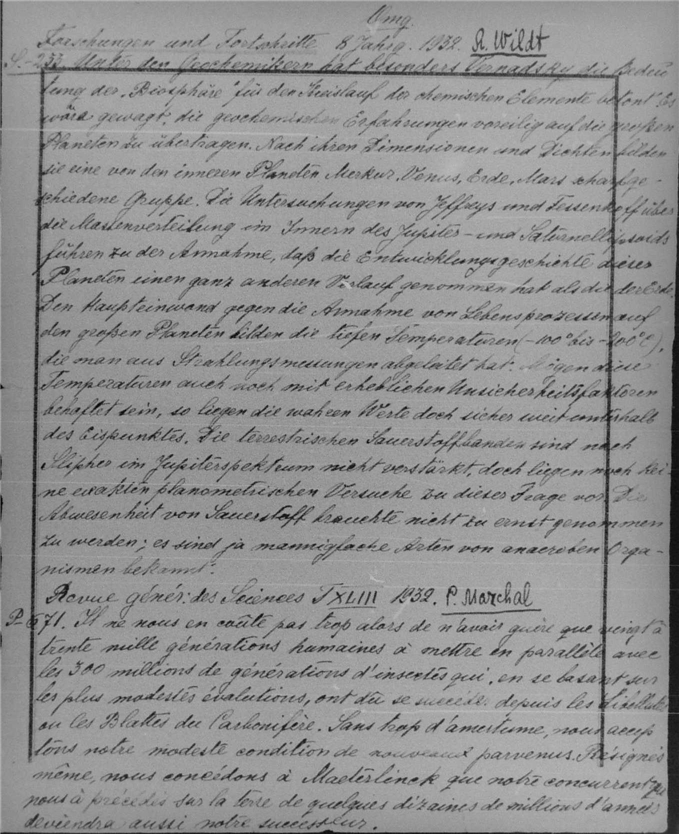 Forschungen und Fortschritte 8 Jahrg. 1932. R. Wildt
S. 233 Unter den Geochemikern hat besonders Vernadsky die Bedeu
tung der „Biosphäre" für den Kreislauf der chemischen Elemente betont. Es
wäre gewagt, die geochemischen Erfahrungen voreilig auf die großen
Planeten zu übertragen. Nach ihren Dimensionen und Dichten bilden
sie eine von den inneren Planeten Merkur, Venus, Erde, Mars scharf ge-
schiedene Gruppe. Die Untersuchungen von Jeffreys und Fessenkoff über
die Massenverteilung im Innern des Jupiter- und Saturnellipsoids
führen zu der Annahme, daß die Entwicklungsgeschichte dieser
Planeten einen ganz anderen Verlauf genommen hat als die der Erde.
Den Haupteinwand gegen die Annahme von Lebensprozessen auf
den großen Planeten bilden die tiefen Temperaturen (-100° bis -200°C),
die man aus Strahlungsmessungen abgeleitet hat. Mögen diese
Temperaturen auch noch mit erheblichen Unsicherheitsfaktoren
behaftet sein, so liegen die wahren Werte doch sicher weit unterhalb
des Eispunktes. Die terrestrischen Sauerstoffbanden sind nach
Slipher im Jupiterspektrum nicht verstärkt, doch liegen noch kei
ne exakten planometrischen Versuche zu dieser Frage vor. Die
Abwesenheit von Sauerstoff brauchte nicht zu ernst genommen
zu werden; es sind ja mannigfache Arten von anaeroben Orga-
nismen bekannt.
Revue génér. des Sciences T XLIII 1932. P. Marchal
P. 671. Il ne nous en coûte pas trop alors de n'avoir guère que vingt à
trente mille générations humaines à mettre en parallèle avec
les 300 millions de générations d'insectes qui, en se basant sur
les plus modestes évolutions, ont dû se succéder depuis les Libellules
ou les Blattes du Carbonifère. Sans trop d'amertume, nous accep
tons notre modeste condition de nouveaux parvenus. Résignés
même, nous concédons à Maeterlinck que notre concurrent qui
nous a précédés sur la terre de quelques dizaines de millions d'années
deviendra aussi notre successeur.